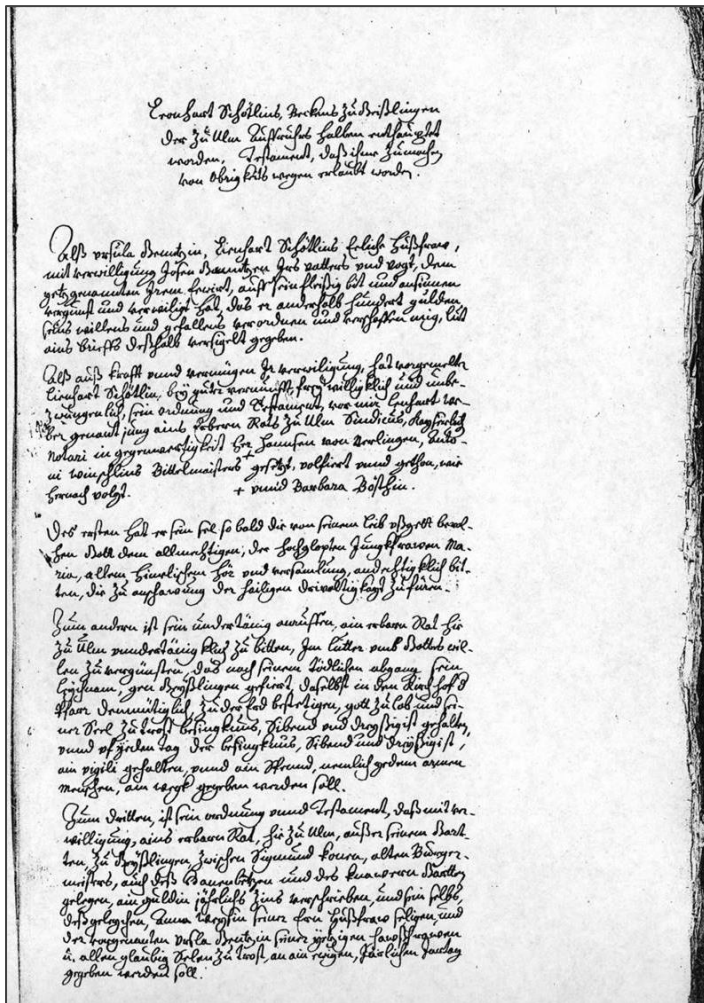 Leonhart Schötlins, Beckens zu Geißlingen
der zu Ulm Auffruhrs halben enthauptet
worden, Testament, daß ihme zumachen
von Obrigkeits wegen erlaubt worden.
Alß vrsula Bentzin, Lienhart Schötlins Eeliche Hußfraw,
mit verwilligung Josen Bentzen Irs vatters vnd vogt, dem
yetzgenannten Irem Eewirt, auff sein fleißig bit und ansinnen
vergunst und verwiligt hat, das er anderhalb hundert gulden
seins willens und gefallens verordnen und verschaffen mig, lut
ains brieffs deßhalb versigelt gegeben.
Alß auß krafft vnnd vermügen Ir verwiligung, hat vorgemelter
Lienhart Schötlin, bey guter vernunfft, frey willigklich und unbe-
zwungenlich, sein ordnung und Testament, vor mir Lenhart
genant jung ains Erbern Rats zu Ulm Sindicus, Kayserlich
Notari in gegenwertigkeit her Hannsen von Verlingen,
ni Bittelmaisters + gesetzt, volfiert vnnd gethon, wie
hernach volgt. + vnnd Barbara Bösthin.
Des ersten hat er sein sel so bald die von seinem leib vßgett beval-
hen Gott dem allmechtigen, der hochgelopten Jungkfrawen Ma-
ria, allem himelischen hör und versamlung, andechtigklich bit-
ten, die zu anschawung der hailigen drivaltigkayt zu füren.
Zum andern ist sein undertänig anruffen, ain erbarn Rat hie
zu Ulm vnndertänigklich zu bitten, Im lutter vmb Gottes wil-
len zu vergünsten, das nach seinem tödlichen abgang sein
leychnam, gen Geyßlingen gefiert, daselbst in den Kirchhof d
Pfarr demmütigklich, zu der bestetigen, gott zu lob und sei-
ner Seel zu trost besingknus, Sibend vnd Dreyßigist gehalten,
vnnd vf yeden tag der besingknus, Sibend und Dreyßigist,
ain vigili gehalten, vnnd ain Spennd, nemlich yedem armen
menschen, ain wegk gegeben werden soll.
Zum dritten, ist sein ordnung vnnd Testament, daß mit ver-
willigung, ains erbarn Rat, hie zu Ulm, außer seinem Gart-
ten, zu Geyßlingen, zwischen Sigmund konen, alten Burger-
meisters, auch deß und des Gartten
gelegen, ain guldin järlichs Zins verschrieben, und sein selbs,
deßgeleychen, Anna seiner Ern Hußfraw seligen, und
der vorgenanten Vrsla Bentzin seiner yetzigen Hawßfrawen
u. allen glaubig Selen zu trost, an ain ewigen, järlichen Jartag
gegeben werden soll.